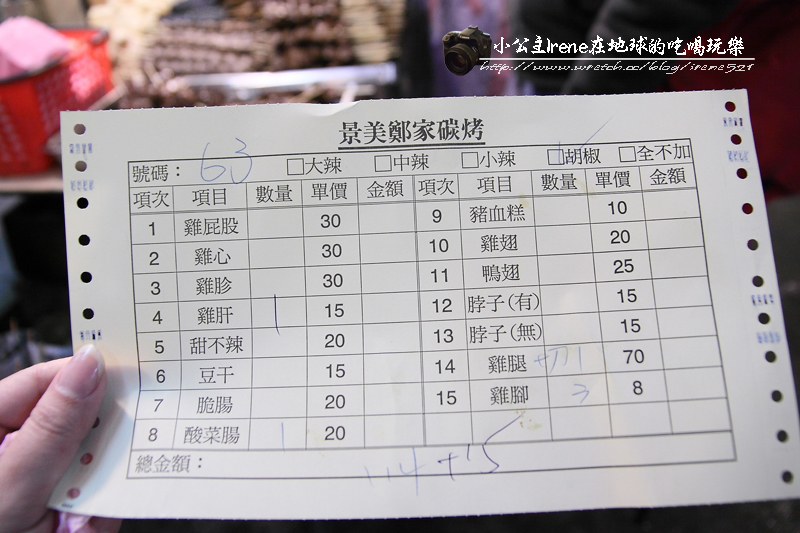 小公主Irene在地球的吃喝玩樂
http://www.wretch.cc/blog/irene521
景美鄭家碳烤
號碼： 63 □大辣 □中辣 □小辣 □胡椒 □全不加
項次 項目 數量 單價 金額 項次 項目 數量 單價 金額
1 雞屁股 30 9 豬血糕 10
2 雞心 30 10 雞翅 20
3 雞胗 30 11 鴨翅 25
4 雞肝 1 15 12 脖子(有) 15
5 甜不辣 20 13 脖子(無) 15
6 豆干 15 14 雞腿 切1 70
7 脆腸 20 15 雞腳 3 8
8 酸菜腸 1 20
總金額： 114+15